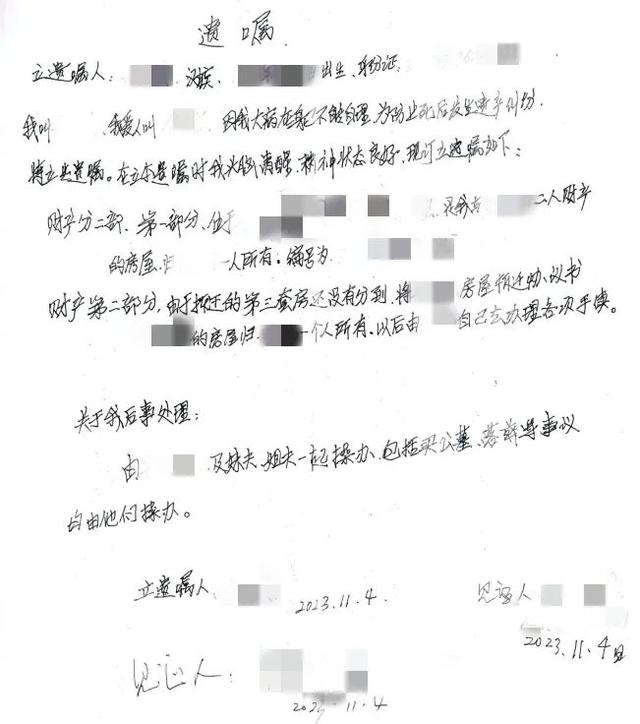 遗嘱
立遗嘱人: 汉族、 出生、身份证:
我叫 我爱人叫 因我大病在身已不能自理,为防止死后发生遗产纠纷,
特立此遗嘱。在立本遗嘱时我头脑清醒、精神状态良好、现订立遗嘱如下:
财产分二部、第一部分、位于 二人财产
的房屋、归 一人所有。编号为
财产第二部分,由于拆迁的第三套房还没有分到,将 房屋拆迁协议书
的房屋归 一个人所有、以后由 自己去办理各次手续。
关于我后事处理:
由 及妹夫、姐夫一起操办、包括买公墓、 等事议
均由他们操办。
立遗嘱人 2023.11.4.
见证人
2023.11.4日
见证人:
2023.11.4